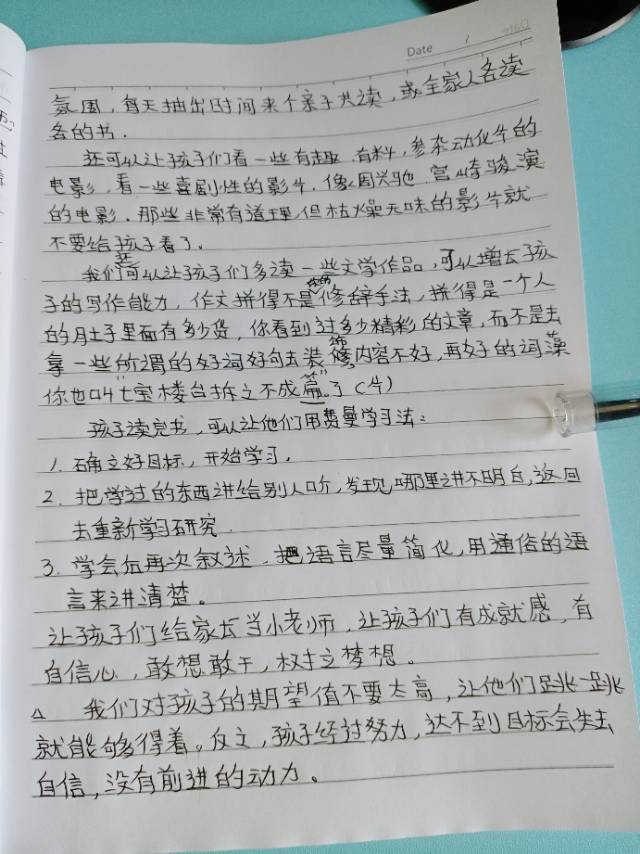 Date
氛围，每天抽出时间来个亲子共读，或全家人各读
各的书。
还可以让孩子们看一些有趣．有料，参杂动化片的
电影，看一些喜剧性的影片．像周兴驰．宫崎骏演
的电影．那些非常有道理，但枯燥无味的影片就
不要给孩子看了。
我们可以让孩子们多读一些文学作品，可以增长孩
子的写作能力，作文拼得不是修辞手法，拼得是一个人
的肚子里面有多少货，你看到过多少精彩的文章，而不是去
拿一些所谓的好词好句去装饰，内容不好，再好的词藻
你也叫"七宝楼台拆之不成篇"了（片）
孩子读完书，可以让他们用费曼学习法：
1. 确立好目标，开始学习，
2. 把学过的东西讲给别人听，发现哪里讲不明白，返回
去重新学习研究．
3. 学会后再次叙述．把语言尽量简化，用通俗的语
言来讲清楚。
让孩子们给家长当小老师，让孩子们有成就感，有
自信心，敢想敢干，树立梦想。
△ 我们对孩子的期望值不要太高，让他们跳一跳
就能够得着。反之，孩子经过努力，达不到目标会失去
自信，没有前进的动力。